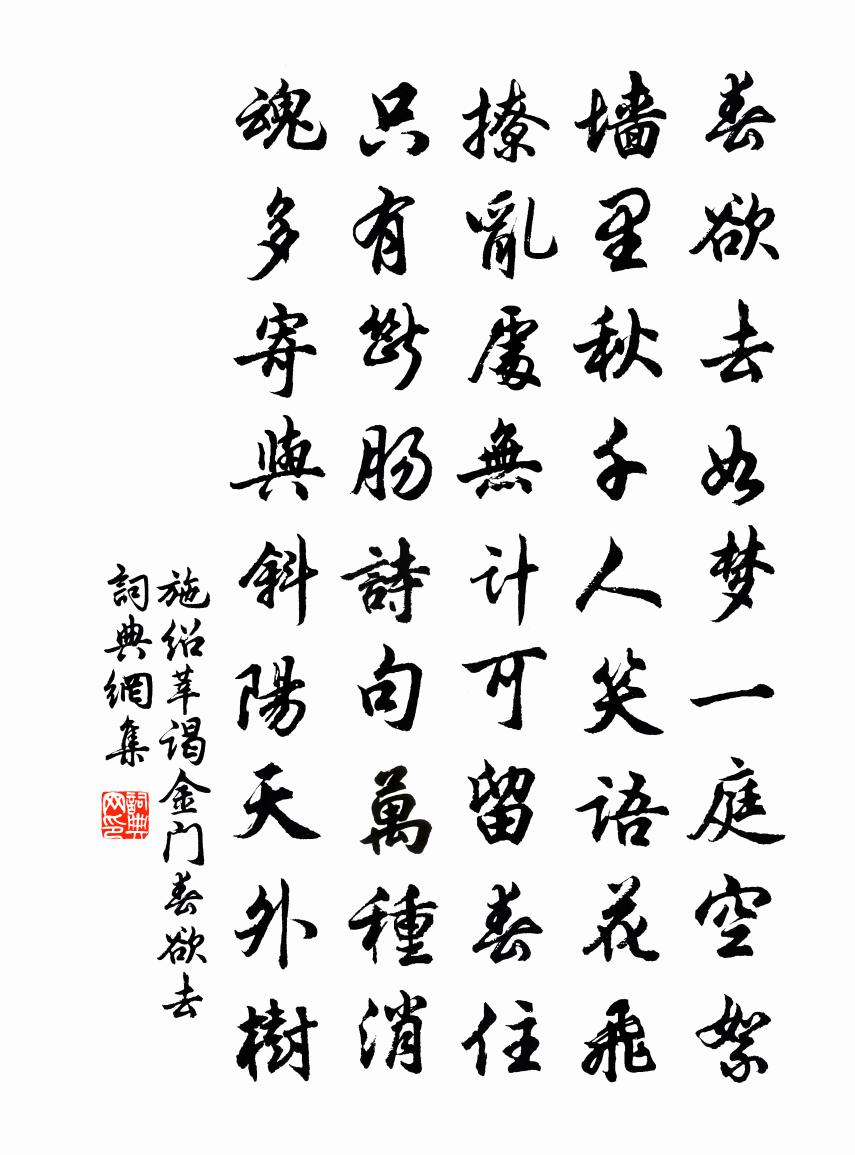 春欲去如梦一庭空絮
墙里秋千人笑语花飛
撩亂處無计可留春住
只有斷肠詩句萬種消
魂多寄與斜陽天外樹
施绍莘谒金门春欲去
詞典網集
詞典网印